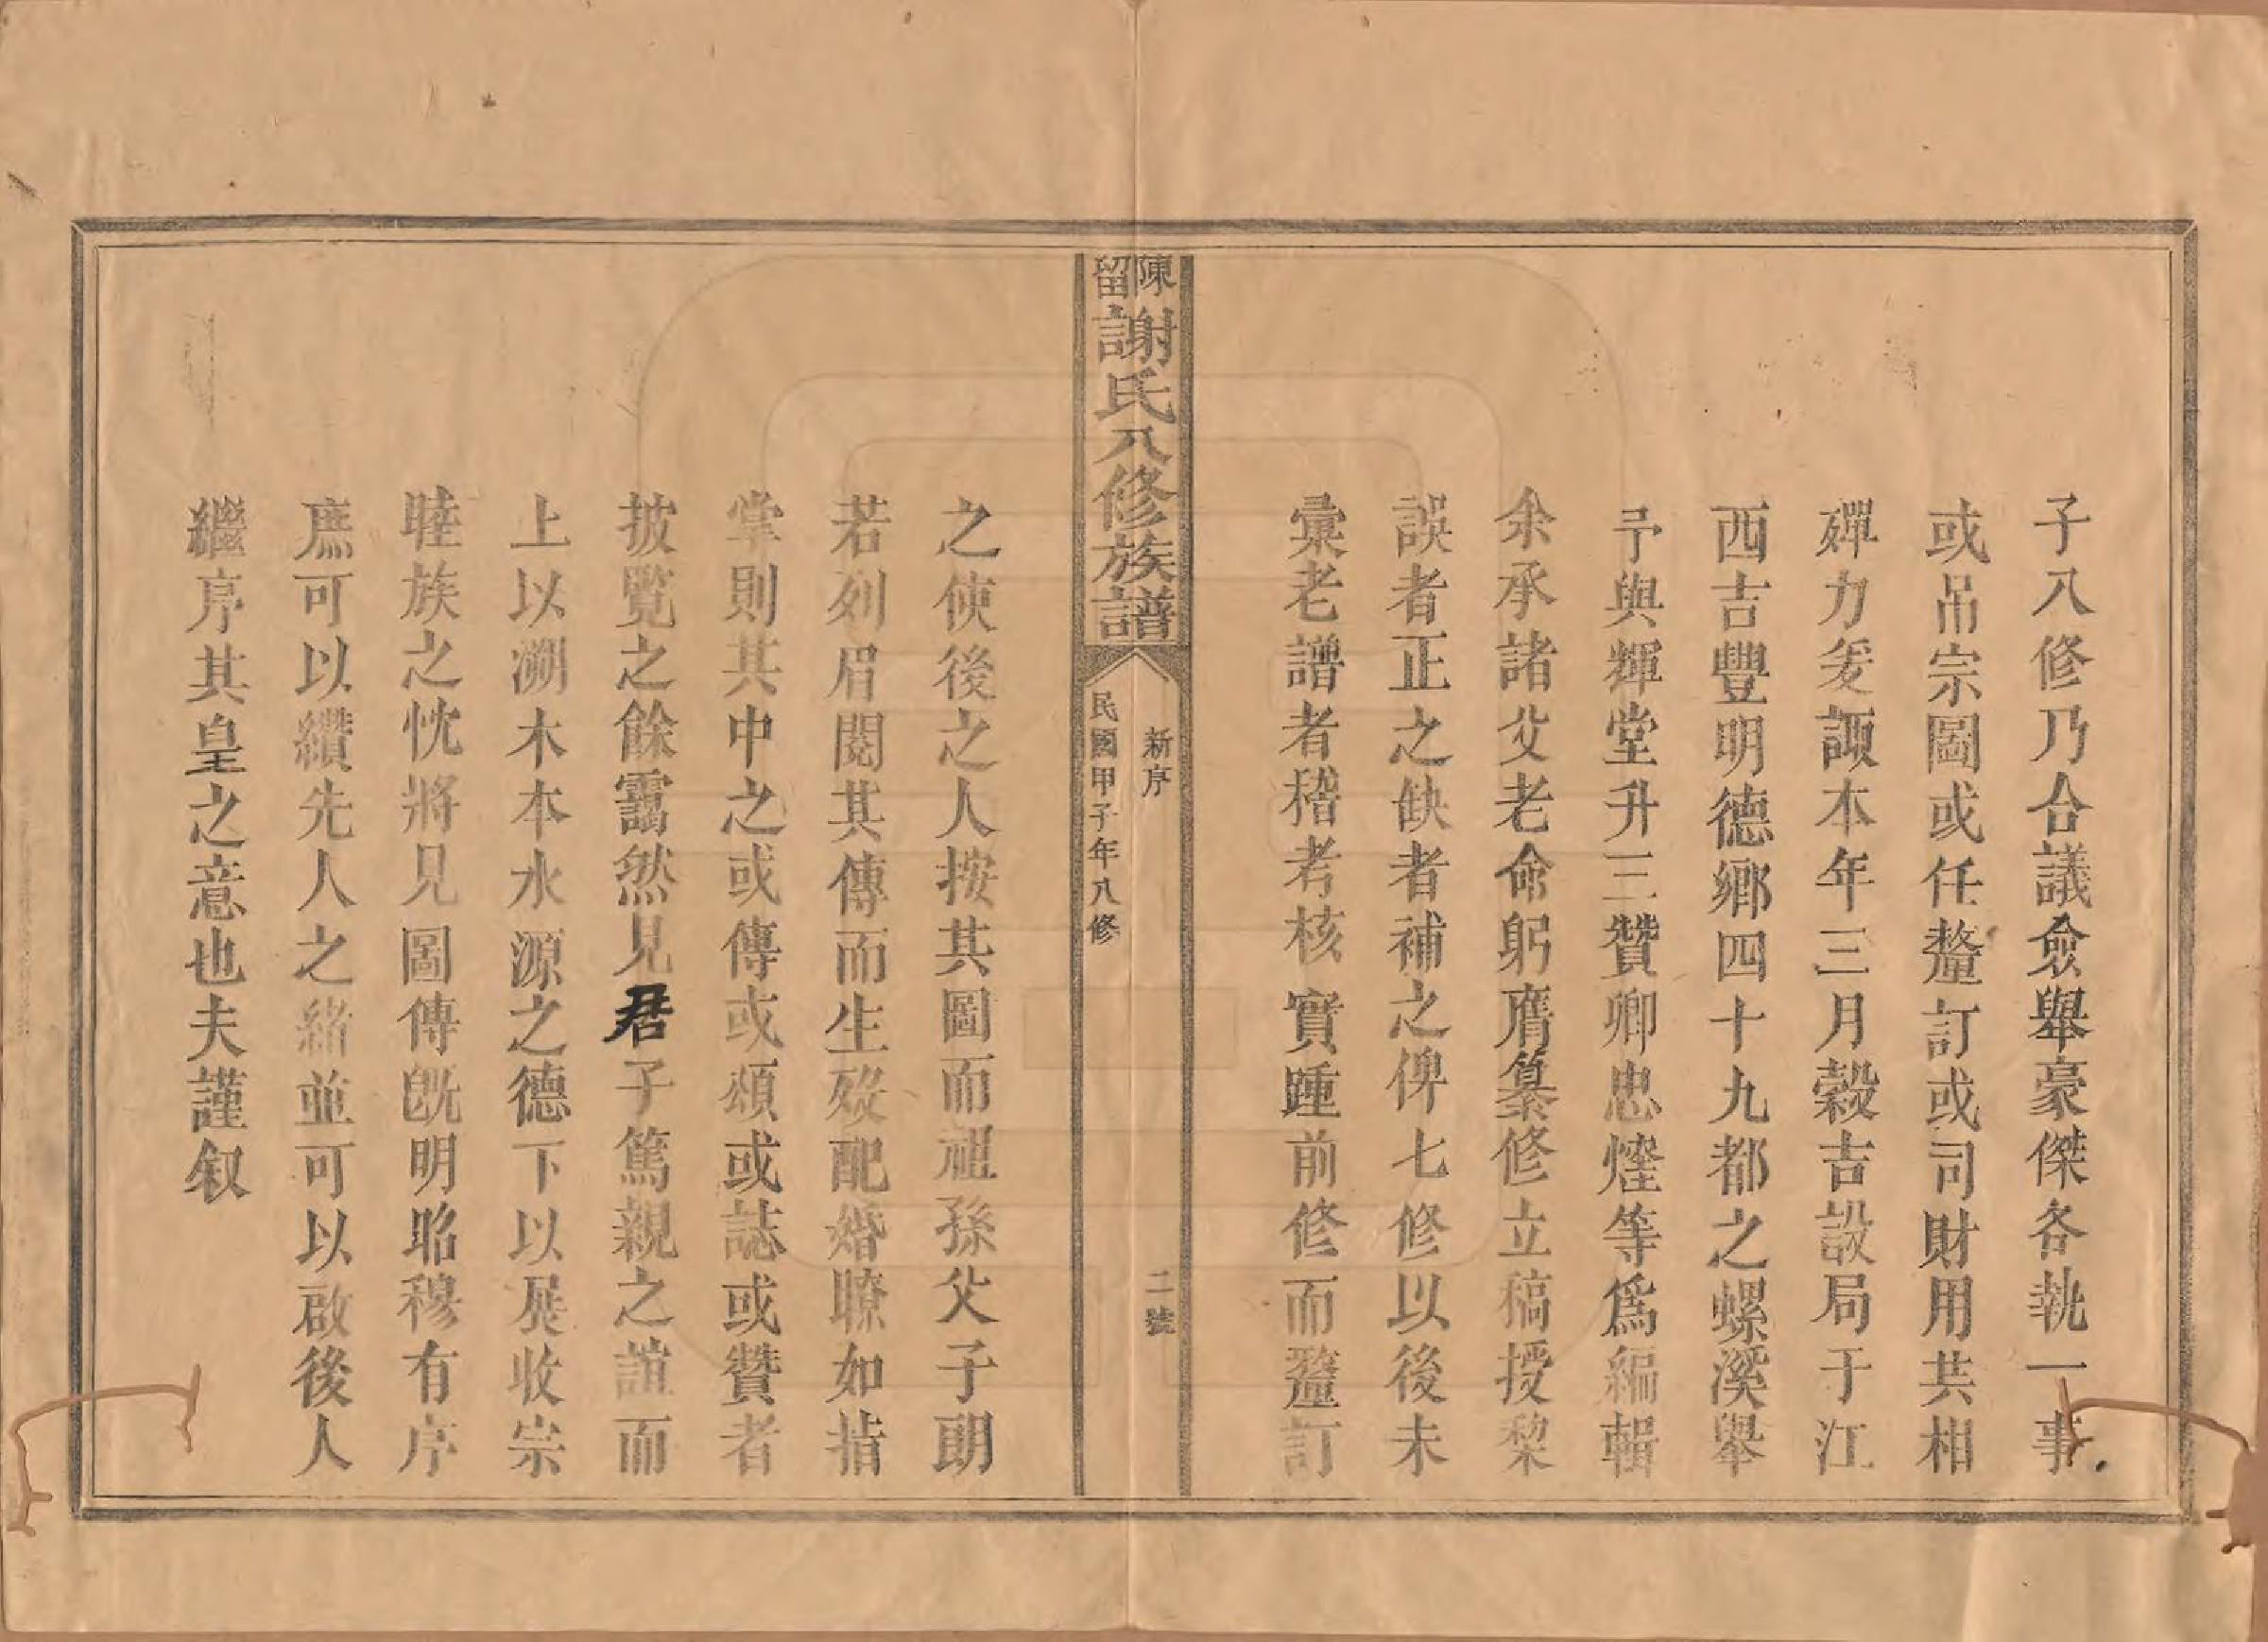 子八修乃合議僉舉豪傑各執一事
或吊宗圖或任釐訂或司財用共相
殫力爰諏本年三月穀吉設局于江
西吉豐明德鄉四十九都之螺溪舉
予與輝堂升三贊卿忠燵等爲編輯
余承諸父老命躬膺纂修立稿授梨
誤者正之缺者補之俾七修以後未
彙老譜者稽考核實踵前修而釐訂
陳留謝氏八修族譜
新序
二號
民國甲子年八修
之使後之人按其圖而祖孫父子朗
若列眉閱其傳而生歿配婚瞭如指
掌則其中之或傳或頌或誌或贊者
披覽之餘靄然見君子篤親之誼而
上以溯木本水源之德下以展收宗
睦族之忱將見圖傳既明昭穆有序
庶可以纘先人之緒並可以啟後人
繼序其皇之意也夫謹叙